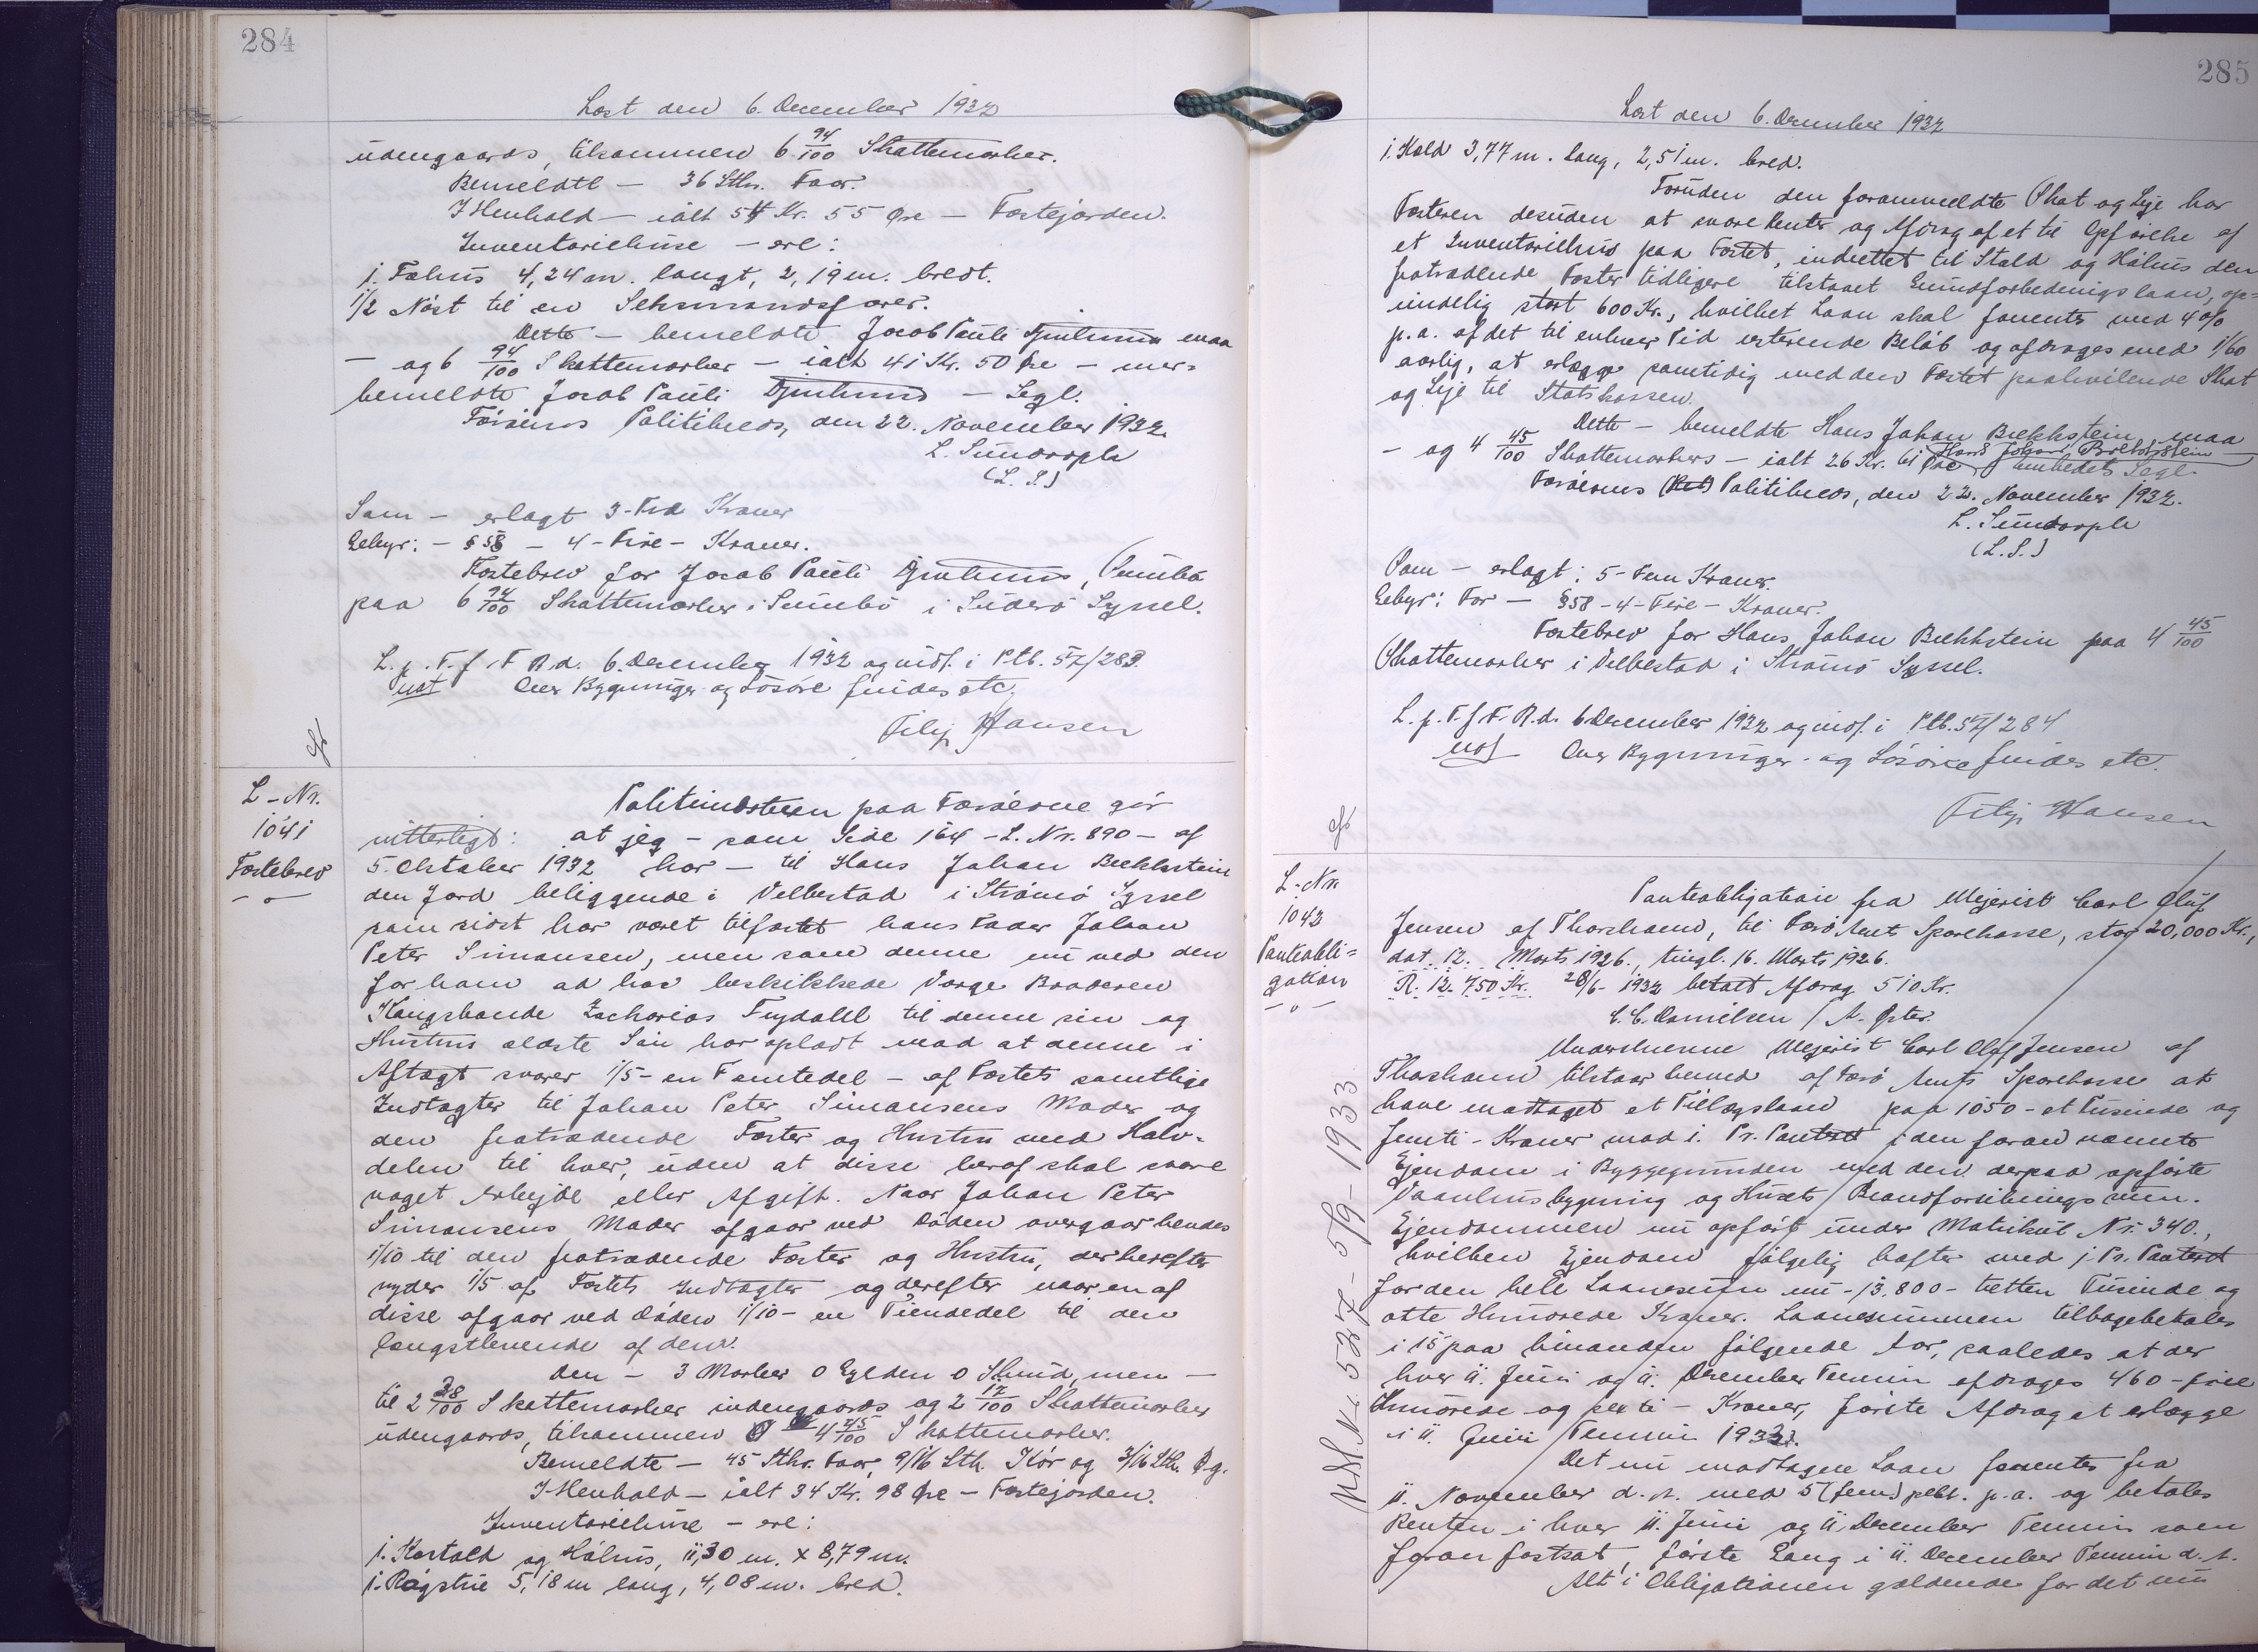 284
Læst den 6. December 1932
udengaards, tilsammen 6 94/100 Skattemarker.
Bemeldte — 36 Stkr. Faar.
I Henhold — ialt 54 Kr. 55 Øre — Fæstejorden.
Inventariehuse — ere:
1. Fæhus 4,24 m. langt, 2,19 m. bredt.
1/2 Nøst til en Seksmandsfarer.
Dette — bemeldte Jacob Pauli Djurhuus maa
— og 6 94/100 Skattemarker — ialt 41 Kr. 50 Øre — mer-
bemeldte Jacob Pauli Djurhuus — Segl.
Færøernes Politikreds, den 22. November 1932.
L. Sundorph
(L. S.)
Som — erlagt 3-Tre Kroner
Gebyr: — § 58 — 4-Fire-Kroner.
Fæstebrev for Jacob Pauli Djurhuus, Sumbø
paa 6 94/100 Skattemarker i Sumbø i Suderø Syssel.
L. p. T. f. F. R. d. 6. December 1932 og indf. i Ptb. 57/283.
not Over Bygninger og Løsøre findes etc.
Filip Hansen
L-Nr.
1041
Fæstebrev
-o-
Politimesteren paa Færøerne gør
vitterligt: at jeg — som Side 164 — L. Nr. 890 — af
5. Oktober 1932 har — til Hans Johan Brekkstein
den Jord beliggende i Velbestad i Strømø Syssel
som sidst har været tilfæstet hans Fader Johan
Peter Simonsen, men som denne nu ved den
for ham ad hoc beskikkede Værge Broderen
Kongsbonde Zacharias Frydahl til denne sin og
Hustrus ældste Søn har opladt mod at denne i
Aftægt svarer 1/5 - en Femtedel - af Fæstets samtlige
Indtægter til Johan Peter Simonsens Moder og
den fratrædende Fæster og Hustru med Halv-
delen til hver, uden at disse heraf skal svare
noget Arbejde eller Afgift. Naar Johan Peter
Simonsens Moder afgaar ved Døden overgaar hendes
1/10 til den fratrædende Fæster og Hustru, der herefter
nyder 1/5 af Fæstets Indtægter og derefter naar en af
disse afgaar ved Døden 1/10 - en Tiendedel til den
længstlevende af dem.
Den — 3 Marker 0 Gylden 0 Skind, men —
til 2 28/100 Skattemarker indengaards og 2 17/100 Skattemarker
udengaards, tilsammen 4 45/100 Skattemarker.
Bemeldte — 45 Stkr. Faar, 9/16 Stk. Kør og 3/16 Stk. Øg.
I Henhold — ialt 34 Kr. 98 Øre — Fæstejorden.
Inventariehuse — ere:
1. Kostald og Høhus, 11,30 m. x 8,79 m.
1. Røgstue 5,18 m lang, 4,08 m. bred.
285
Læst den 6. December 1932
1. Hold 3,77 m. lang, 2,51 m. bred.
Foruden den foranmeldte Skat og Leje har
Fæsteren desuden at svare Renter og Afdrag af et til Opførelse af
et Inventariehus paa Fæstet, indrettet til Stald og Høhus den
fratrædende Fæster tidligere tilstaaet Grundforbedringslaan, op-
rindelig stort 600 Kr., hvilket Laan skal forrentes med 4 %
p. a. af det til enhver Tid resterende Beløb og afdrages med 1/60
aarlig, at erlægge samtidig med den Fæstet paahvilende Skat
og Leje til Statskassen.
Dette — bemeldte Hans Johan Brekkstein maa
— og 4 45/100 Skattemarker — ialt 26 Kr. 61 Øre Hans Johan Brekkstein — Embedets Segl.
Færøernes Politikreds, den 22. November 1932.
L. Sundorph
(L. S.)
Som — erlagt: 5-Fem Kroner.
Gebyr: For — § 58 - 4 - Fire - Kroner.
Fæstebrev for Hans Johan Brekkstein paa 4 45/100
Skattemarker i Velbestad i Strømø Syssel.
L. p. T. f. F. R. d. 6 December 1932 og indf. i Ptb. 57/284
not Over Bygninger og Løsøre findes etc.
Filip Hansen
L-Nr.
1042
Panteobli-
gation
-o-
Panteobligation fra Mejerist Carl Oluf
Jensen af Thorshavn, til Færø Amts Sparekasse, stor 20,000 Kr.,
dat. 12. Marts 1926, tingl. 16. Marts 1926.
R. 12.750 Kr. 28/6 - 1932 betalt Afdrag 510 Kr.
C. C. Danielsen / A. Øster.
Undertegnede Mejerist Carl Oluf Jensen af
Thorshavn tilstaar herved af Færø Amts Sparekasse at
have modtaget et Tillægslaan paa 1050 - et Tusinde og
femti - Kroner mod 1. Pr. Panteret i den foran nævnte
Ejendom i Byggegrunden med den derpaa opførte
Vaanhusbygning og Husets Brandforsikringssum.
Ejendommen nu opført under Matrikul Nr. 340.,
hvilken Ejendom følgelig hæfter med 1. Pr. Panteret
for den hele Laanesum nu - 13,800 - tretten Tusinde og
otte Hundrede Kroner. Laanesummen tilbagebetales
i 15 paa hinanden følgende Aar, saaledes at der
hver 11. Juni og 11. December Termin afdrages 460 - fire
Hundrede og seksti - Kroner, første Afdrag at erlægge
i 11. Juni Termin 1933.
Det nu modtagne Laan forrentes fra
11. November d. A. med 5 (fem) pCt. p. a. og betales
Renten i hver 11. Juni og 11. December Termin som
foran fastsat, første Gang i 11. December Termin d. A.
Alt i Obligationen gældende for det nu
Nr. 527 - 5/9 - 1933